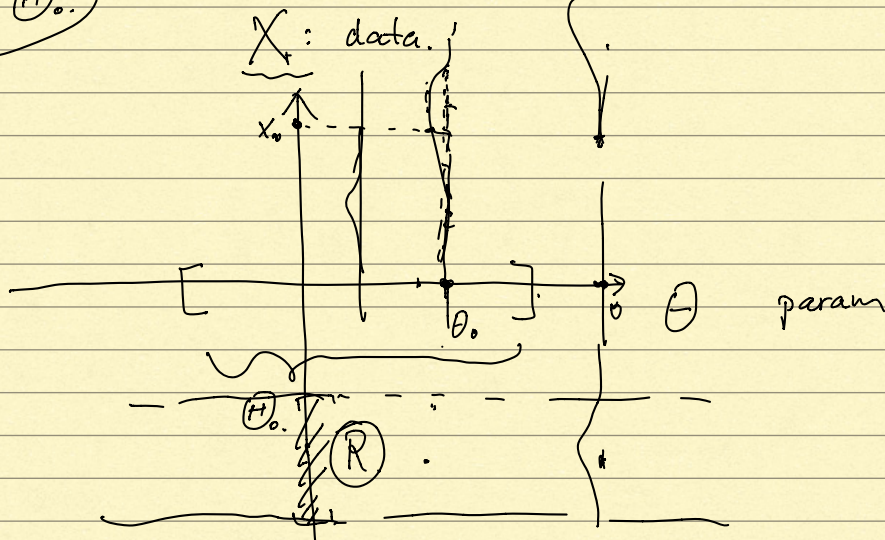 Θ₀.
X: data.
x₀
θ₀
θ
Θ
param
Θ₀.
R